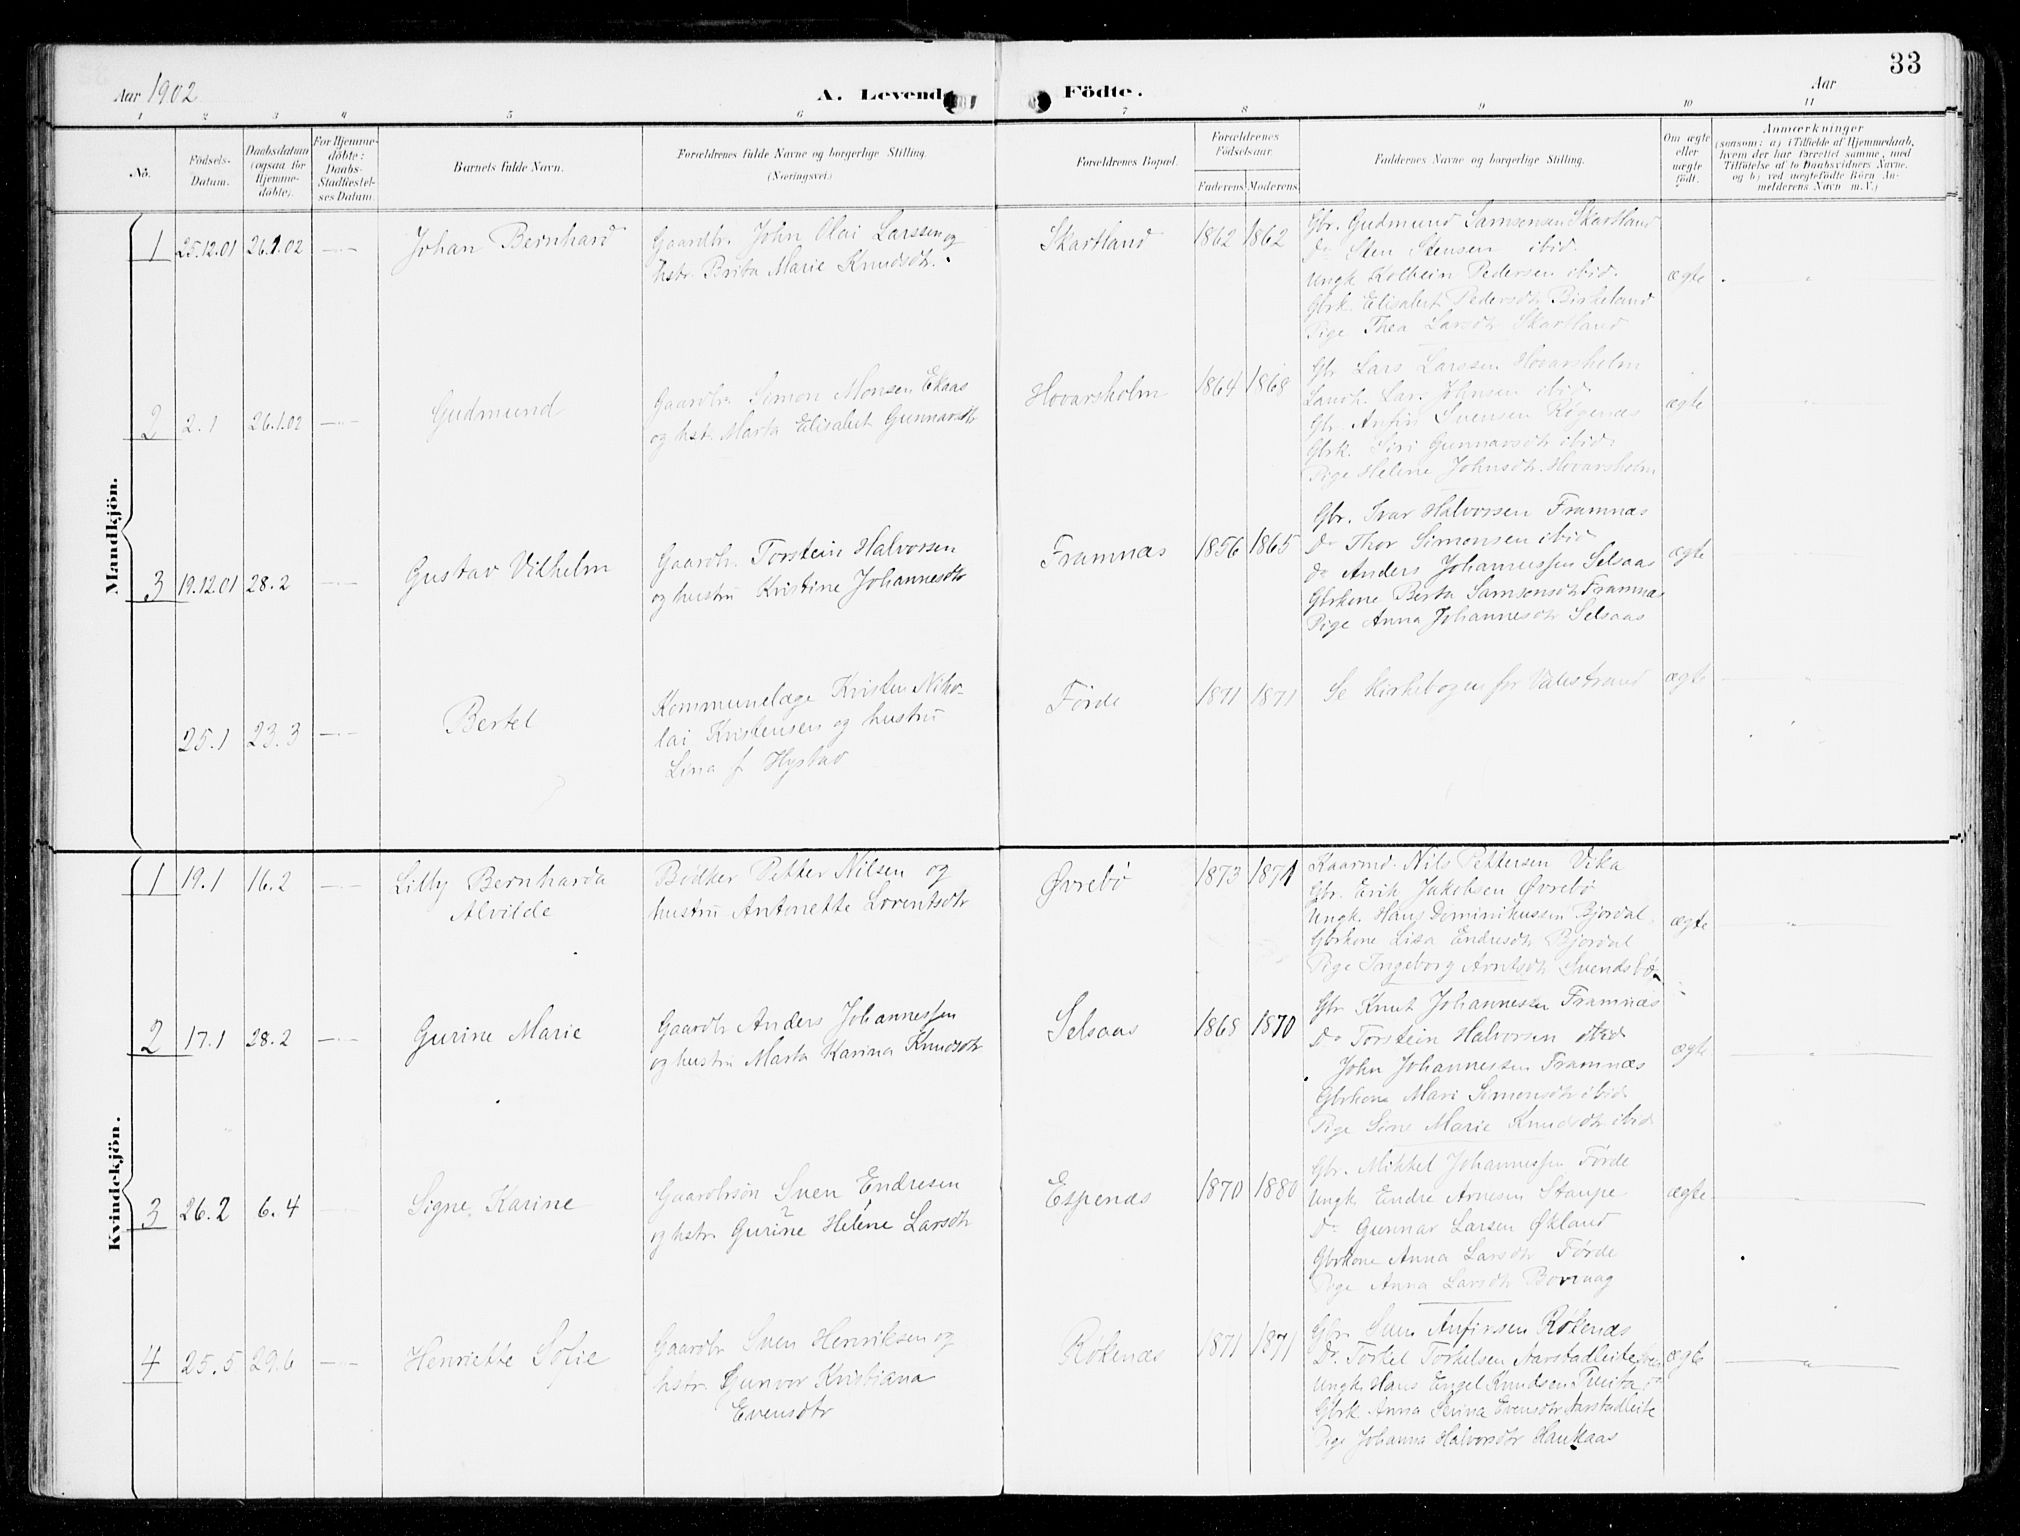 33
Aar 1902
A. Levende
Födte.
Aar
1 2 3 4 5 6 7 8 9 10 11
No.
Födsels-Datum.
Daabsdatum (ogsaa for Hjemmedöbte).
For Hjemmedöbte: Daabs-Stadfæstelses Datum.
Barnets fulde Navn.
Forældrenes fulde Navne og borgerlige Stilling.
(Næringsvei.)
Forældrenes Bopæl.
Forældrenes Födselsaar.
Faderens. Moderens.
Faddernes Navne og borgerlige Stilling.
Om ægte eller uægte födt.
Anmærkninger
(saasom: a) i Tilfælde af Hjemmedaab, hvem der har forrettet samme, med Tilföielse af to Daabsvidners Navne, og b) ved uægtefödte Börn Anmelderens Navn m.V.)
Mandkjön.
1 25.12.01 26.1.02 Johan Bernhard
Gaardbr. John Olai Larssen og
hstr. Brita Marie Knudsdtr.
Skartland 1862 1862
Gbr. Gudmund Samsonsen Skartland
Do Sten Stensen ibid.
Ungk. Kolbein Pedersen ibid.
Gbrk. Elisabet Pedersdtr Birkeland
Pige Thea Larsdtr Skartland
ægte
2 2.1 26.1.02 Gudmund
Gaardbr. Simon Monsen Ekaas
og hstr. Marta Elisabet Gunnarsdtr
Hovarsholm 1864 1868
Gbr Lars Larssen Hovarsholm
Johnsen ibid
Gbr. Anfin Svensen Røgenæs
Gbrk. Siri Gunnarsdtr ibid.
Pige Helene Johnsdtr. Hovarsholm
ægte
3 19.12.01 28.2 Gustav Vilhelm
Gaardbr. Torstein Halvorsen
og hustru Kristine Johannesdtr
Framnæs 1856 1865
Gbr. Ivar Halvorsen Framnæs
Do Thor Simonsen ibid
Do Anders Johannessen Selsaas
Gbrkone Berta Samsonsdtr Framnæs
Pige Anna Johannesdtr Selsaas
ægte
25.1 23.3 Bertel
Kommunelæge Kristen Niko-
lai Kristensen og hustru
Lina f Hystad
Førde 1871 1871
Se Kirkebogen for Valestrand
ægte
Kvindekjön.
1 19.1 16.2 Lilly Bernharda
Alvilde
Bødker Petter Nilsen og
hustru Antonette Lorentsdtr
Øvrebø 1873 1871
Kaarmd. Nils Pettersen Vika
Gbr. Erik Jakobsen Øvrebø
Ungk. Hans Dominikussen Bjordal
Gbrkone Lisa Endresdtr Bjordal
Pige Ingeborg Arntsdtr Svendsbø
ægte
2 17.1 28.2 Gurine Marie
Gaardbr Anders Johannessen
og hustru Marta Karina Knudsdtr
Selsaas 1868 1870
Gbr Knut Johannessen Framnæs
Do Torstein Halvorsen ibid
John Johannessen Framnæs
Gbrkone Mari Simonsdtr ibid
Pige Sine Marie Knudsdtr ibid
ægte
3 26.2 6.4 Signe Karine
Gaardbrsøn Sven Endresen
og hstr. Gurine Helene Larsdtr
Espenæs 1870 1880
Gbr. Mikkel Johannessen Førde
Ungk. Endre Arnesen Staupe
Do Gunnar Larsen Økland
Gbrkone Anna Larsdtr Førde
Pige Anna Larsdtr Borevag
ægte
4 25.5 29.6 Henriette Sofie
Gaardbr Sven Henriksen og
hstr. Gunvor Kristiana
Evensdtr
Røkenæs 1871 1871
Gbr. Sven Anfinsen Røkenæs
Do. Torkel Torkelsen Aarstadleite
Ungk. Hans Engel Knudsen
Gbrk. Anna Serina Evensdtr Aarstadleite
Pige Johanna Halvorsdtr Haukaas
ægte